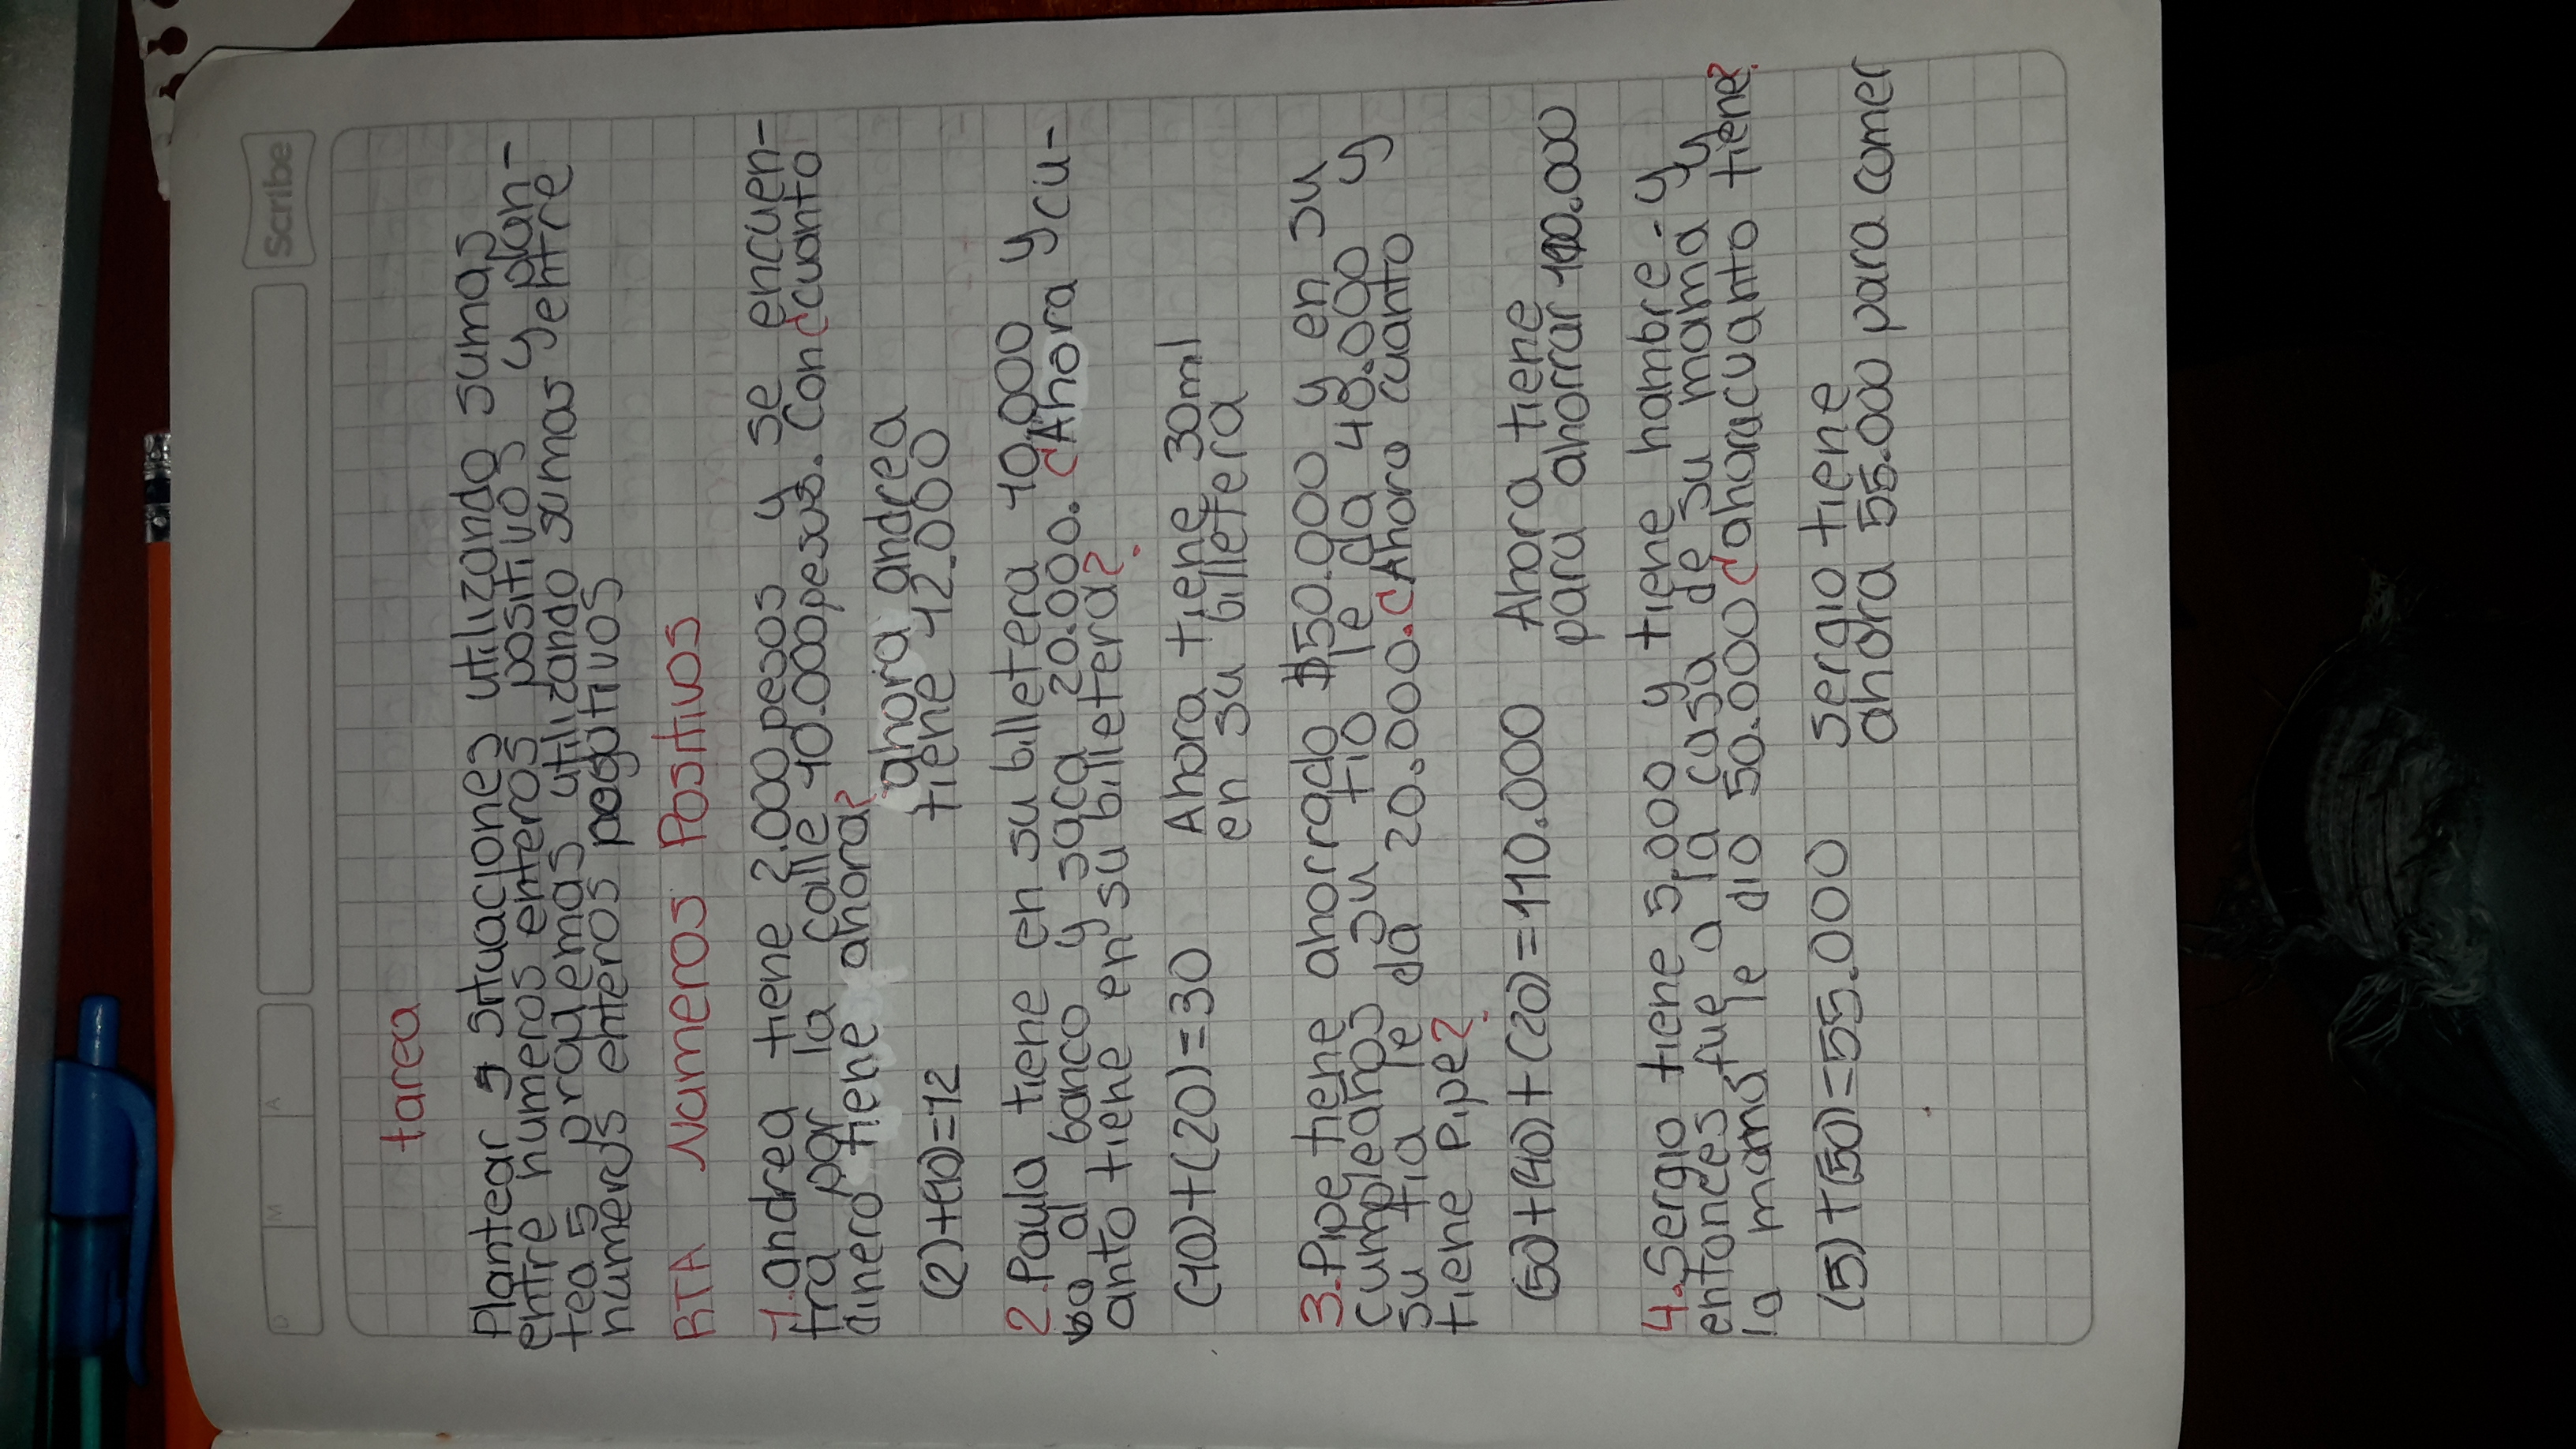 Scribe
D M A
tarea
Plantear 5 situaciones utilizando sumas
entre numeros enteros positivos y plan-
tea 5 proplemas utilizando sumas yentre
numeros enteros pogutivos
RTA Numeros Positivos
1. andrea tiene 2.000 pesos y se encuen-
tra por la calle 10.000 pesos. Con ¿cuanto
dinero tiene ahora?
(2)+(10)=12 ahora andrea
tiene 12.000
2. Paula tiene en su billetera 10.000 y
va al banco y saca 20.000. ¿Ahora y cu-
anto tiene en su billetera?
(10)+(20)=30 Ahora tiene 30mil
en su billetera
3. Pipe tiene ahorrado $50.000 y en su
cumpleaños su tio le da 40.000 y
su tia le da 20.000. ¿Ahora cuanto
tiene Pipe?
(50)+(40)+(20)=110.000 Ahora tiene
para ahorrar 110.000
4. Sergio tiene 5.000 y tiene hambre. y
entonces fue a la casa de su mama y
la mama le dio 50.000 ¿ahora cuanto tiene?
(5)+(50)=55.000 sergio tiene
ahora 55.000 para comer